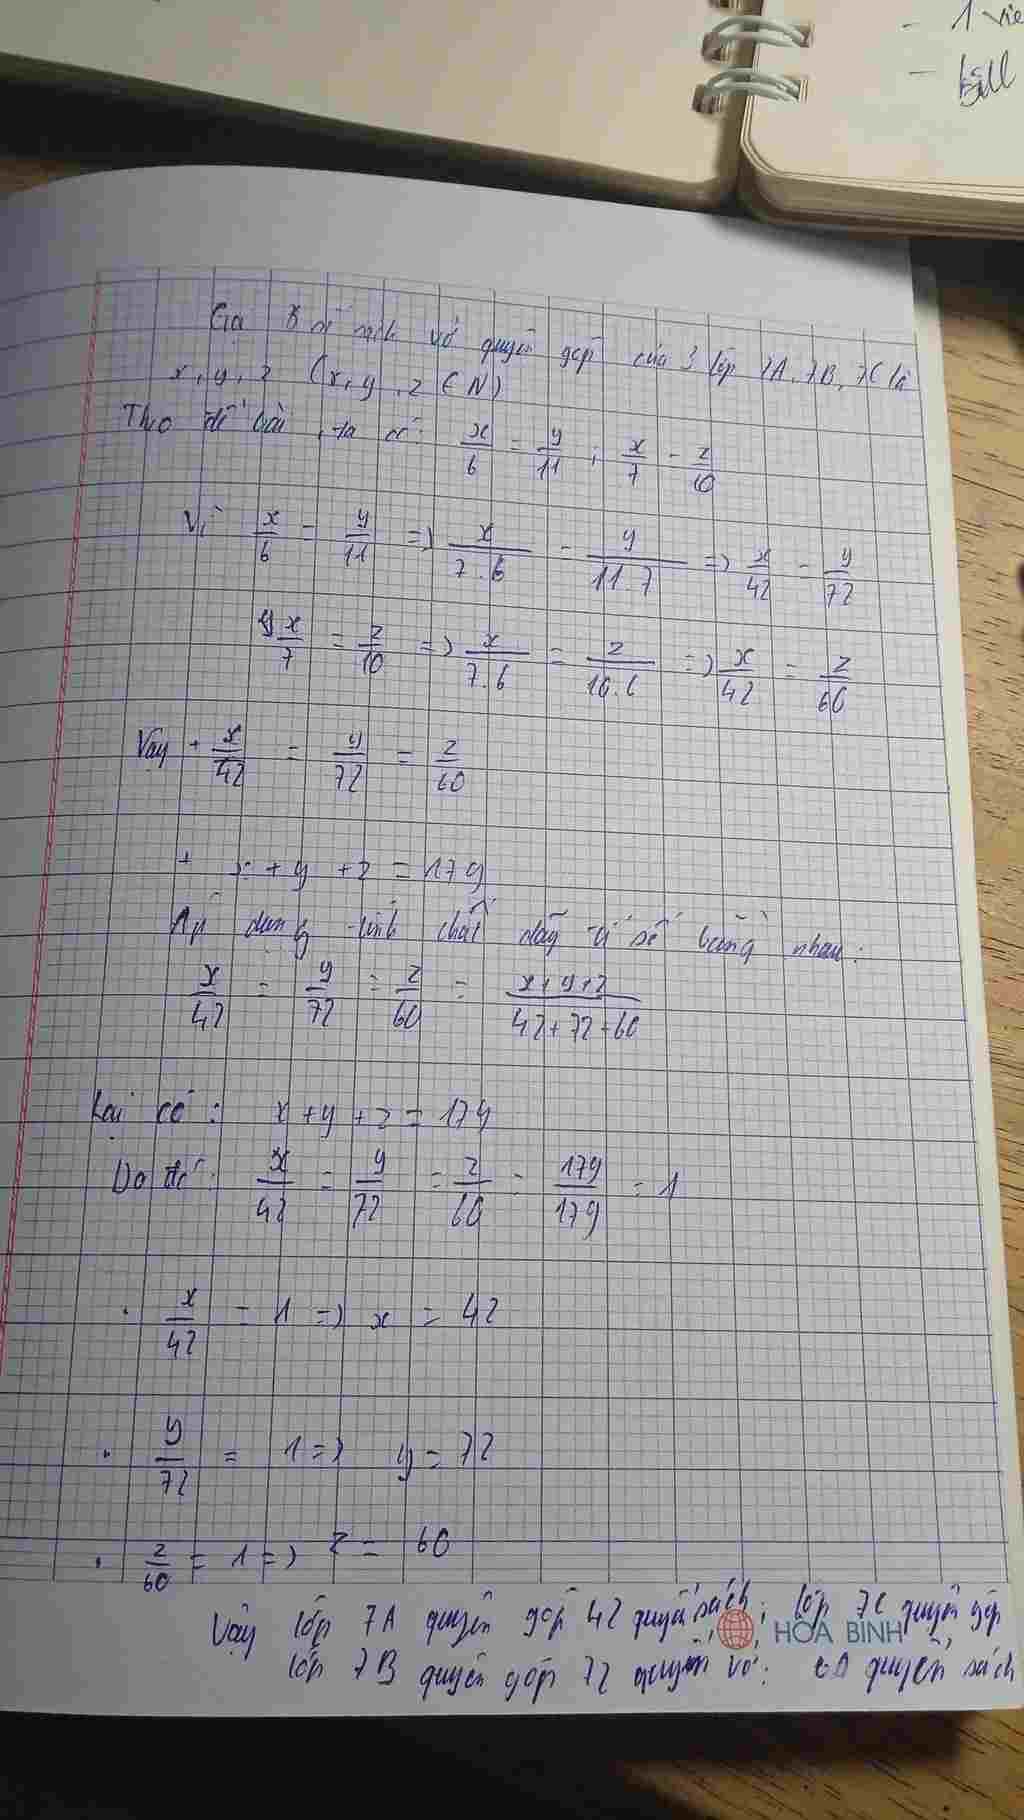 - 1 viê
- Bill
Gọi số sách vở quyên góp của 3 lớp 7A, 7B, 7C là
x, y, z (x, y, z ∈ N)
Theo đề bài, ta có: x/6 = y/11 ; x/7 = z/10
Vì x/6 = y/11 => x/7.6 = y/11.7 => x/42 = y/72
x/7 = z/10 => x/7.6 = z/10.6 => x/42 = z/60
Vậy + x/42 = y/72 = z/60
+ x + y + z = 179
Áp dụng tính chất dãy tỉ số bằng nhau:
x/42 = y/72 = z/60 = x+y+z/42+72+60
Lại có: x + y + z = 179
Do đó: x/42 = y/72 = z/60 = 179/179 = 1
. x/42 = 1 => x = 42
. y/72 = 1 => y = 72
. z/60 = 1 => z = 60
Vậy lớp 7A quyên góp 42 quyển sách; lớp 7C quyên góp
HÒA BÌNH
lớp 7B quyên góp 72 quyển vở; 60 quyển sách